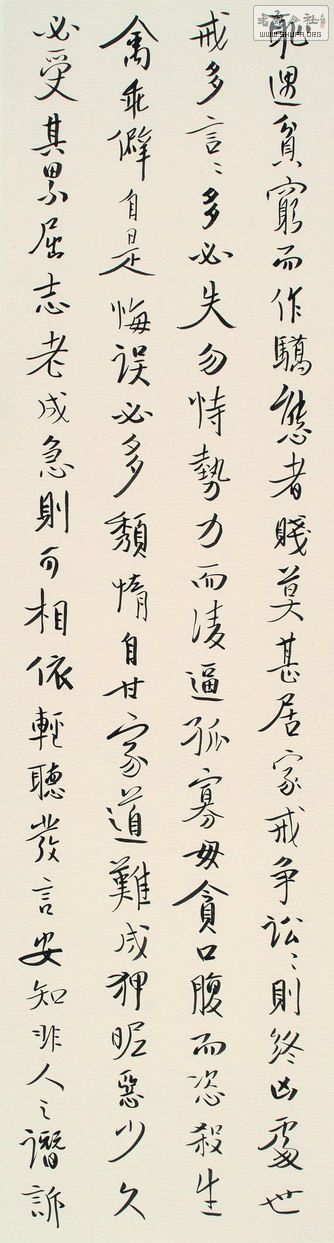 WWW.SHUFA.ORG
耻遇貧窮而作驕態者賤莫甚居家戒争訟〻則終凶處世
戒多言〻多必失勿恃勢力而凌逼孤寡毋貪口腹而恣殺生
禽乖僻自是悔誤必多頹惰自甘家道難成狎昵惡少久
必受其累屈志老成急則可相依輕聽發言安知非人之譖訴